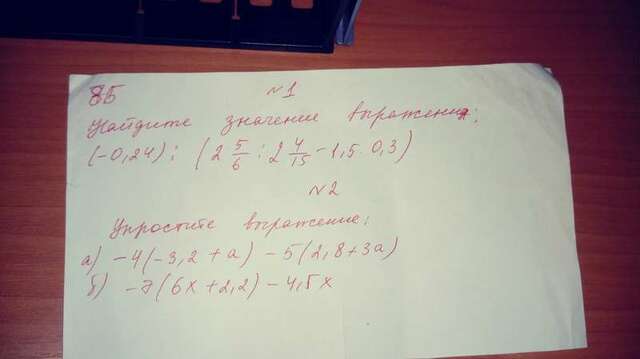 85 №1
Найдите значение выражения:
(-0,24) : (2 5/6 : 2 4/15 - 1,5 · 0,3)
№2
Упростите выражение:
а) -4(-3,2 + а) - 5(2,8 + 3а)
б) -7(6х + 2,2) - 4,5х